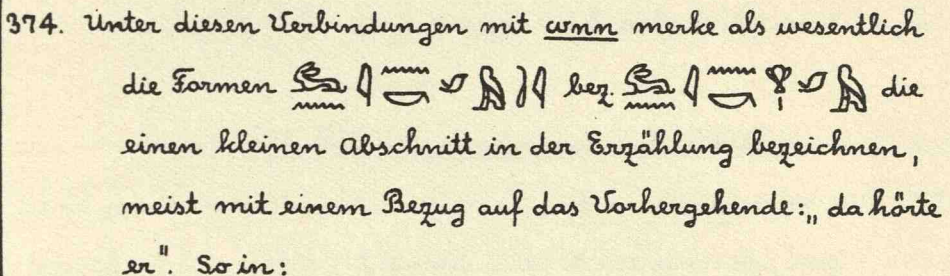 374. Unter diesen Verbindungen mit wnn merke als wesentlich
die Formen bez. die
einen kleinen Abschnitt in der Erzählung bezeichnen,
meist mit einem Bezug auf das Vorhergehende: „da hörte
er". So in: